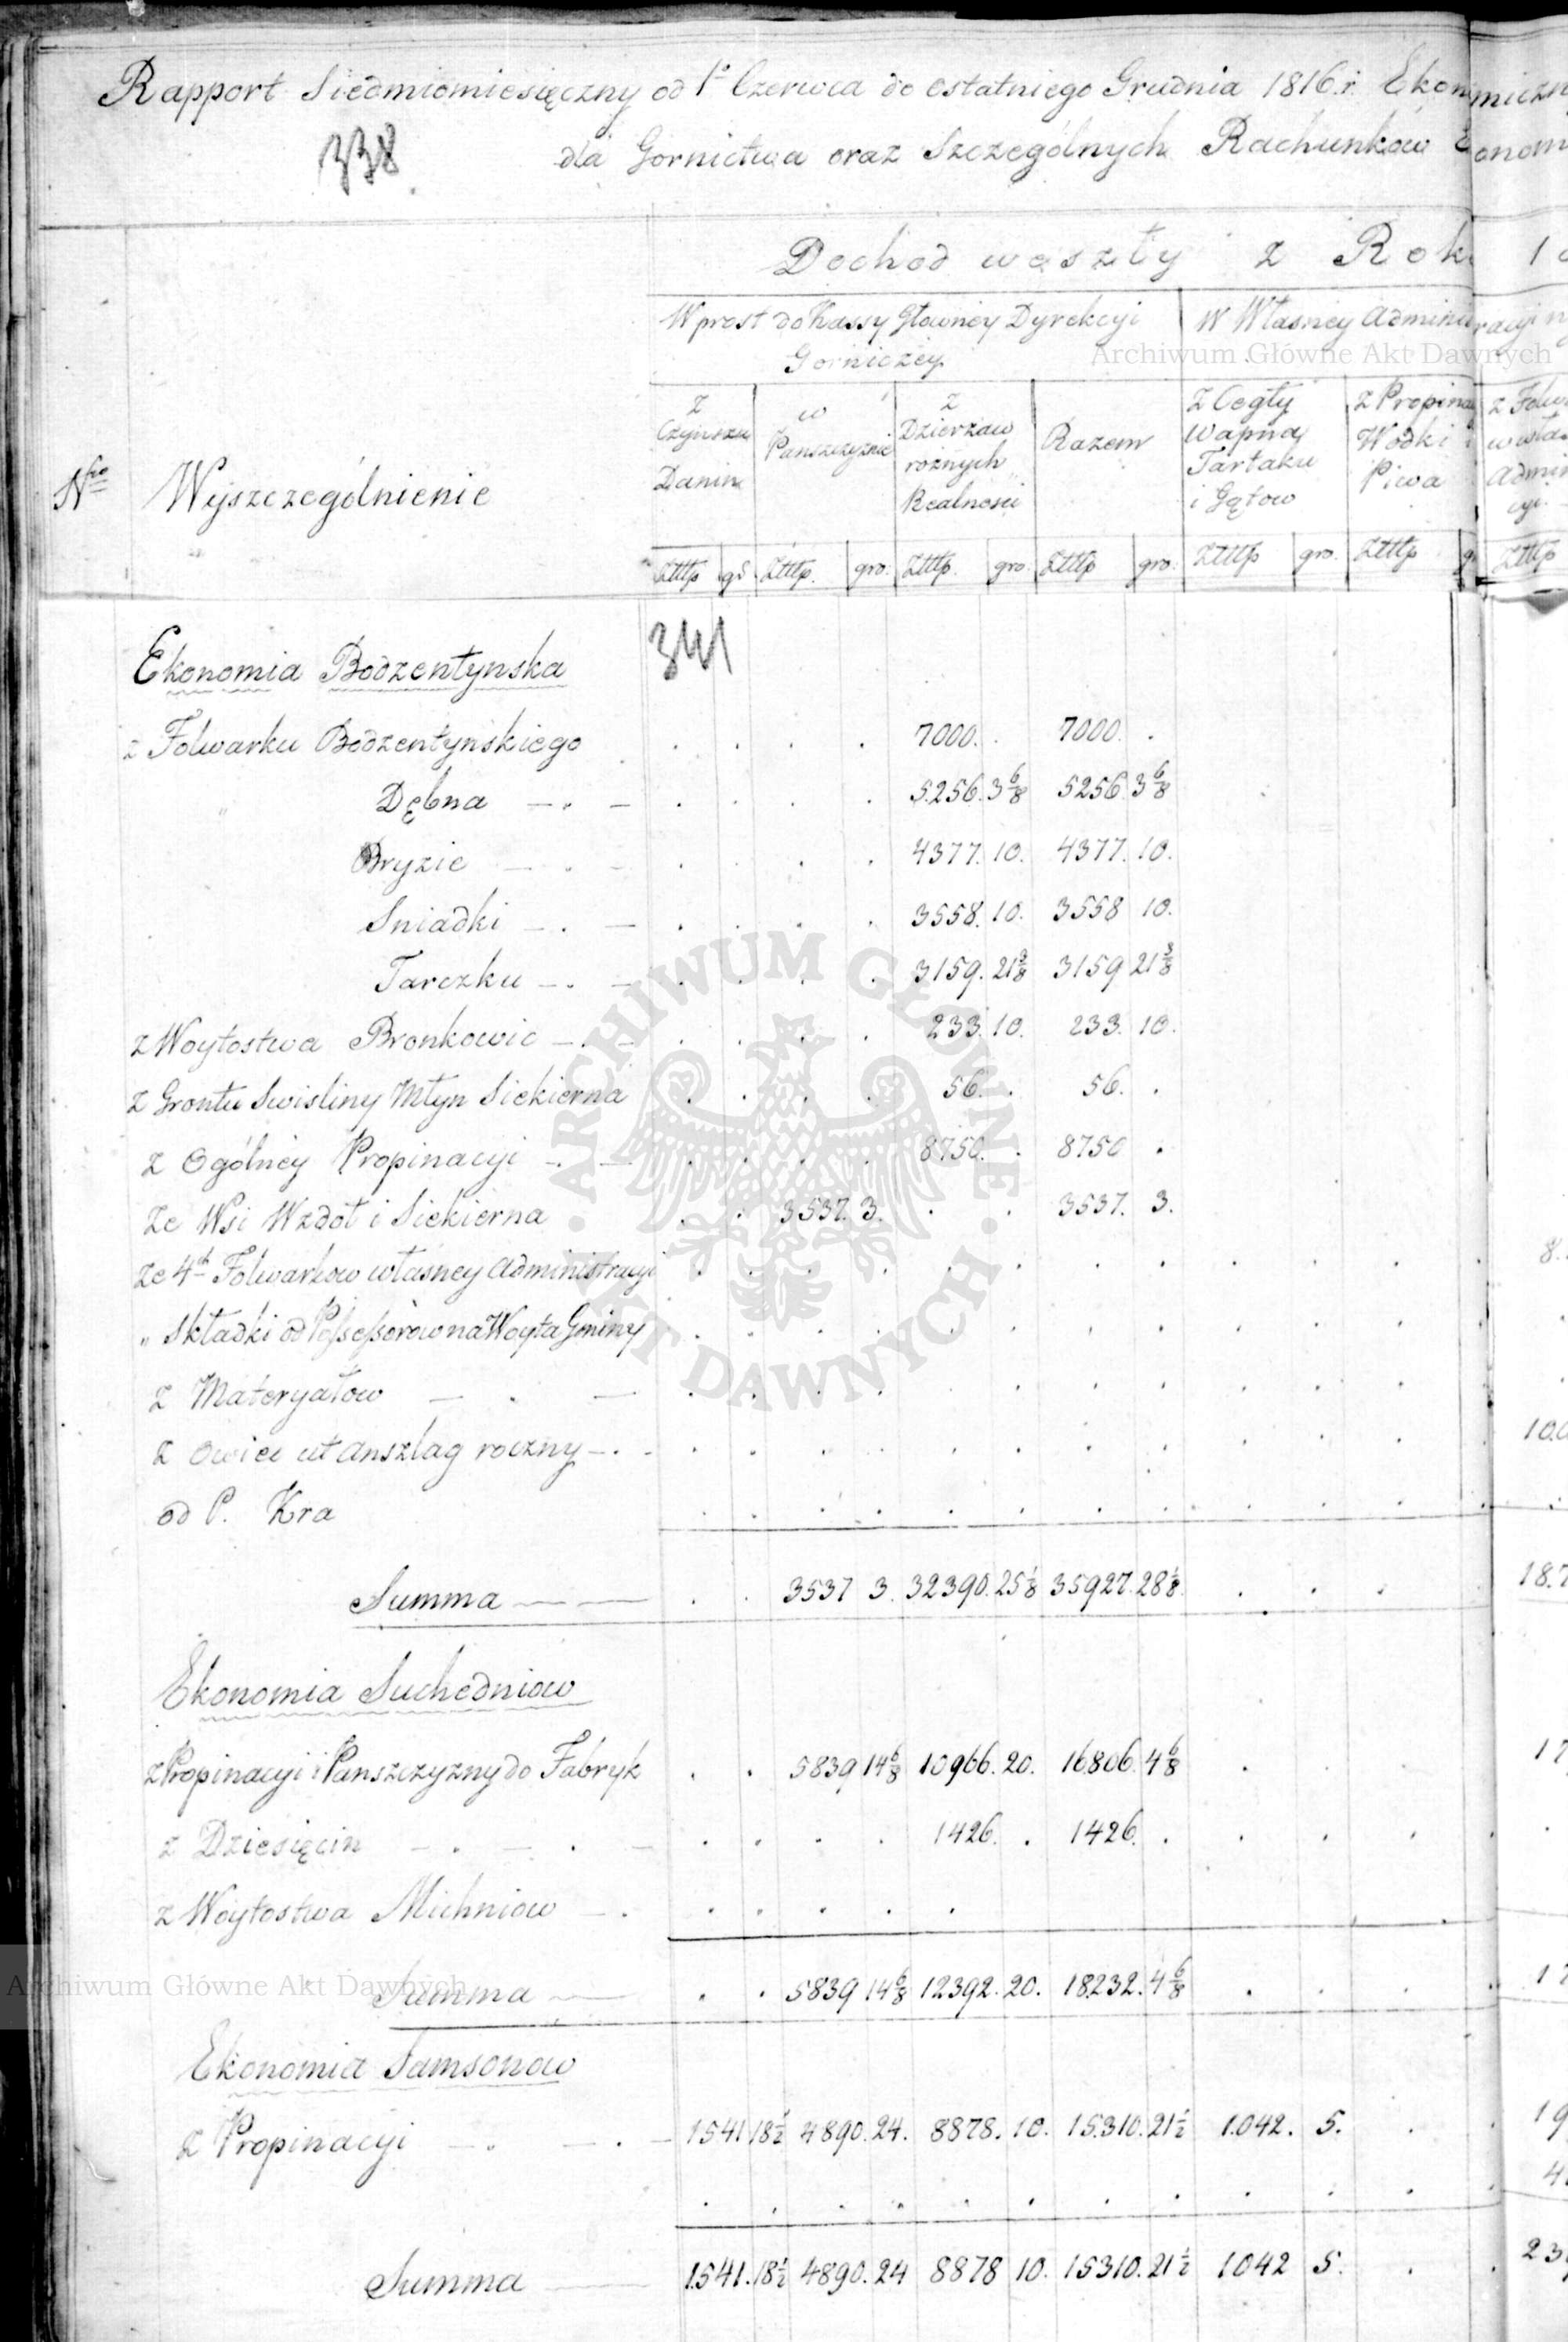 Rapport Siedmiomiesięczny od 1o Czerwca do Ostatniego Grudnia 1816 r. Ekonomiczny
338 dla Gornictwa oraz Szczególnych Rachunków Econom
Dochod weszły z Rok 1
Wprost do Kassy Głowney Dyrekcyi Gorniczey
W Własney Adminis racyi
Archiwum Główne Akt Dawnych
Nro Wyszczególnienie
z Czynszu Danin
w Panszczyznie
z Dzierżaw rożnych Realnosci
Razem
z Cegły Wapna Tartaku i Gątow
z Propina Wodki i Piwa
z Folw własn Admin cyi
Złłłp gr Złłłp. gro. Złłłp. gro. Złłłp gro. Złłłp gro. Złłłp g Złłłp
Ekonomia Bodzentynska 341
z Folwarku Bodzentynskiego . . . . 7000. . 7000. .
" Dębna — . — . . . . 5256. 3 6/8 5256. 3 6/8
Bryzie — . — . . . . 4377. 10. 4377. 10.
Sniadki — . — . . . . 3558. 10. 3558 10.
Tarczku — . — . . . . 3159. 21 3/8 3159 21 3/8
z Woytostwa Bronkowic — . — . . . . 233. 10. 233. 10.
z Grontu Swisliny Młyn Siekierna . . . . 56. . 56. .
z Ogólney Propinacyi — . — . . . . 8750. . 8750 .
Ze Wsi Wzdół i Siekierna . . 3537. 3. . . 3537. 3.
Ze 4ch Folwarkow własney Administracyi . . . . . . . . . . . . 8.
" Składki od Possessorow na Woyta Gminy . . . . . . . . . . .
z Materyałow — . — . . . . . . . . . . .
z Owiec ut Anszlag roczny — . — . . . . . . . . . . . 10.0
od P. Kra . . . . . . . . . . .
Summa — — . . 3537 3. 32390. 25 1/8 35927. 28 1/8 . . . 18.7
Ekonomia Suchedniow
z Propinacyi i Panszczyzny do Fabryk . . 5839 14 6/8 10966. 20. 16806. 4 6/8 . . . 17
z Dziesięcin — . — . — . . . . 1426. . 1426. . . . .
z Woytostwa Michniow — . . . . . .
Archiwum Główne Akt Dawnych
Summa — . . 5839 14 6/8 12392. 20. 18232. 4 6/8 . . . 17
Ekonomia Samsonow
z Propinacyi — . — . — 1541 18 1/2 4890. 24. 8878. 10. 15.310. 21 1/2 1.042. 5. . 19
. . . . . . . . . . . 4
Summa — 1.541. 18 1/2 4890. 24 8878 10. 15310. 21 1/2 1042 5. . . 23
ARCHIWUM GŁÓWNE · AKT DAWNYCH ·